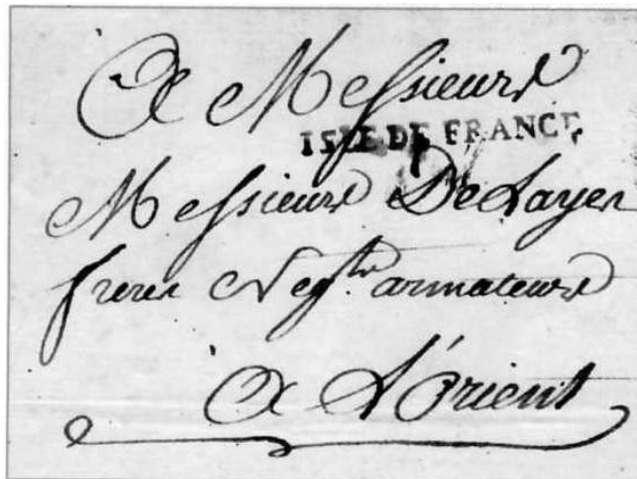 A Messieurs
ISLE DE FRANCE
Messieurs DeLayen
freres Negts armateurs
A L'Orient